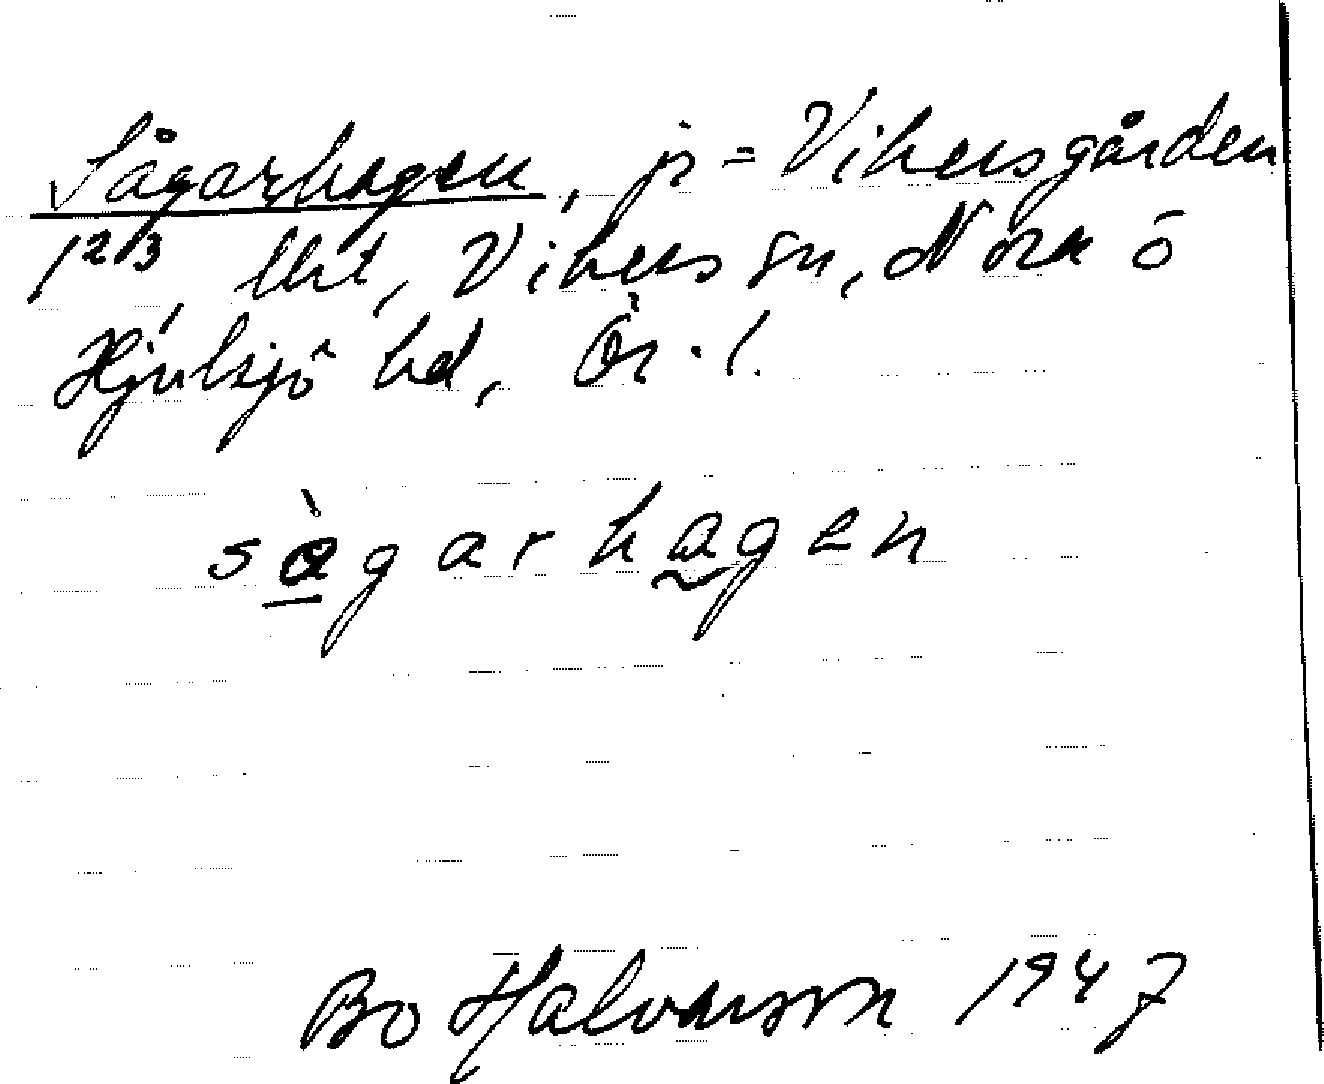 Sågarhagen, js = Vikersgården
1²/3, lht, Vikers sn, Nora o
Hjulsjö hd, Ör. l.
sàgarhagen
Bo Halvarson 1947